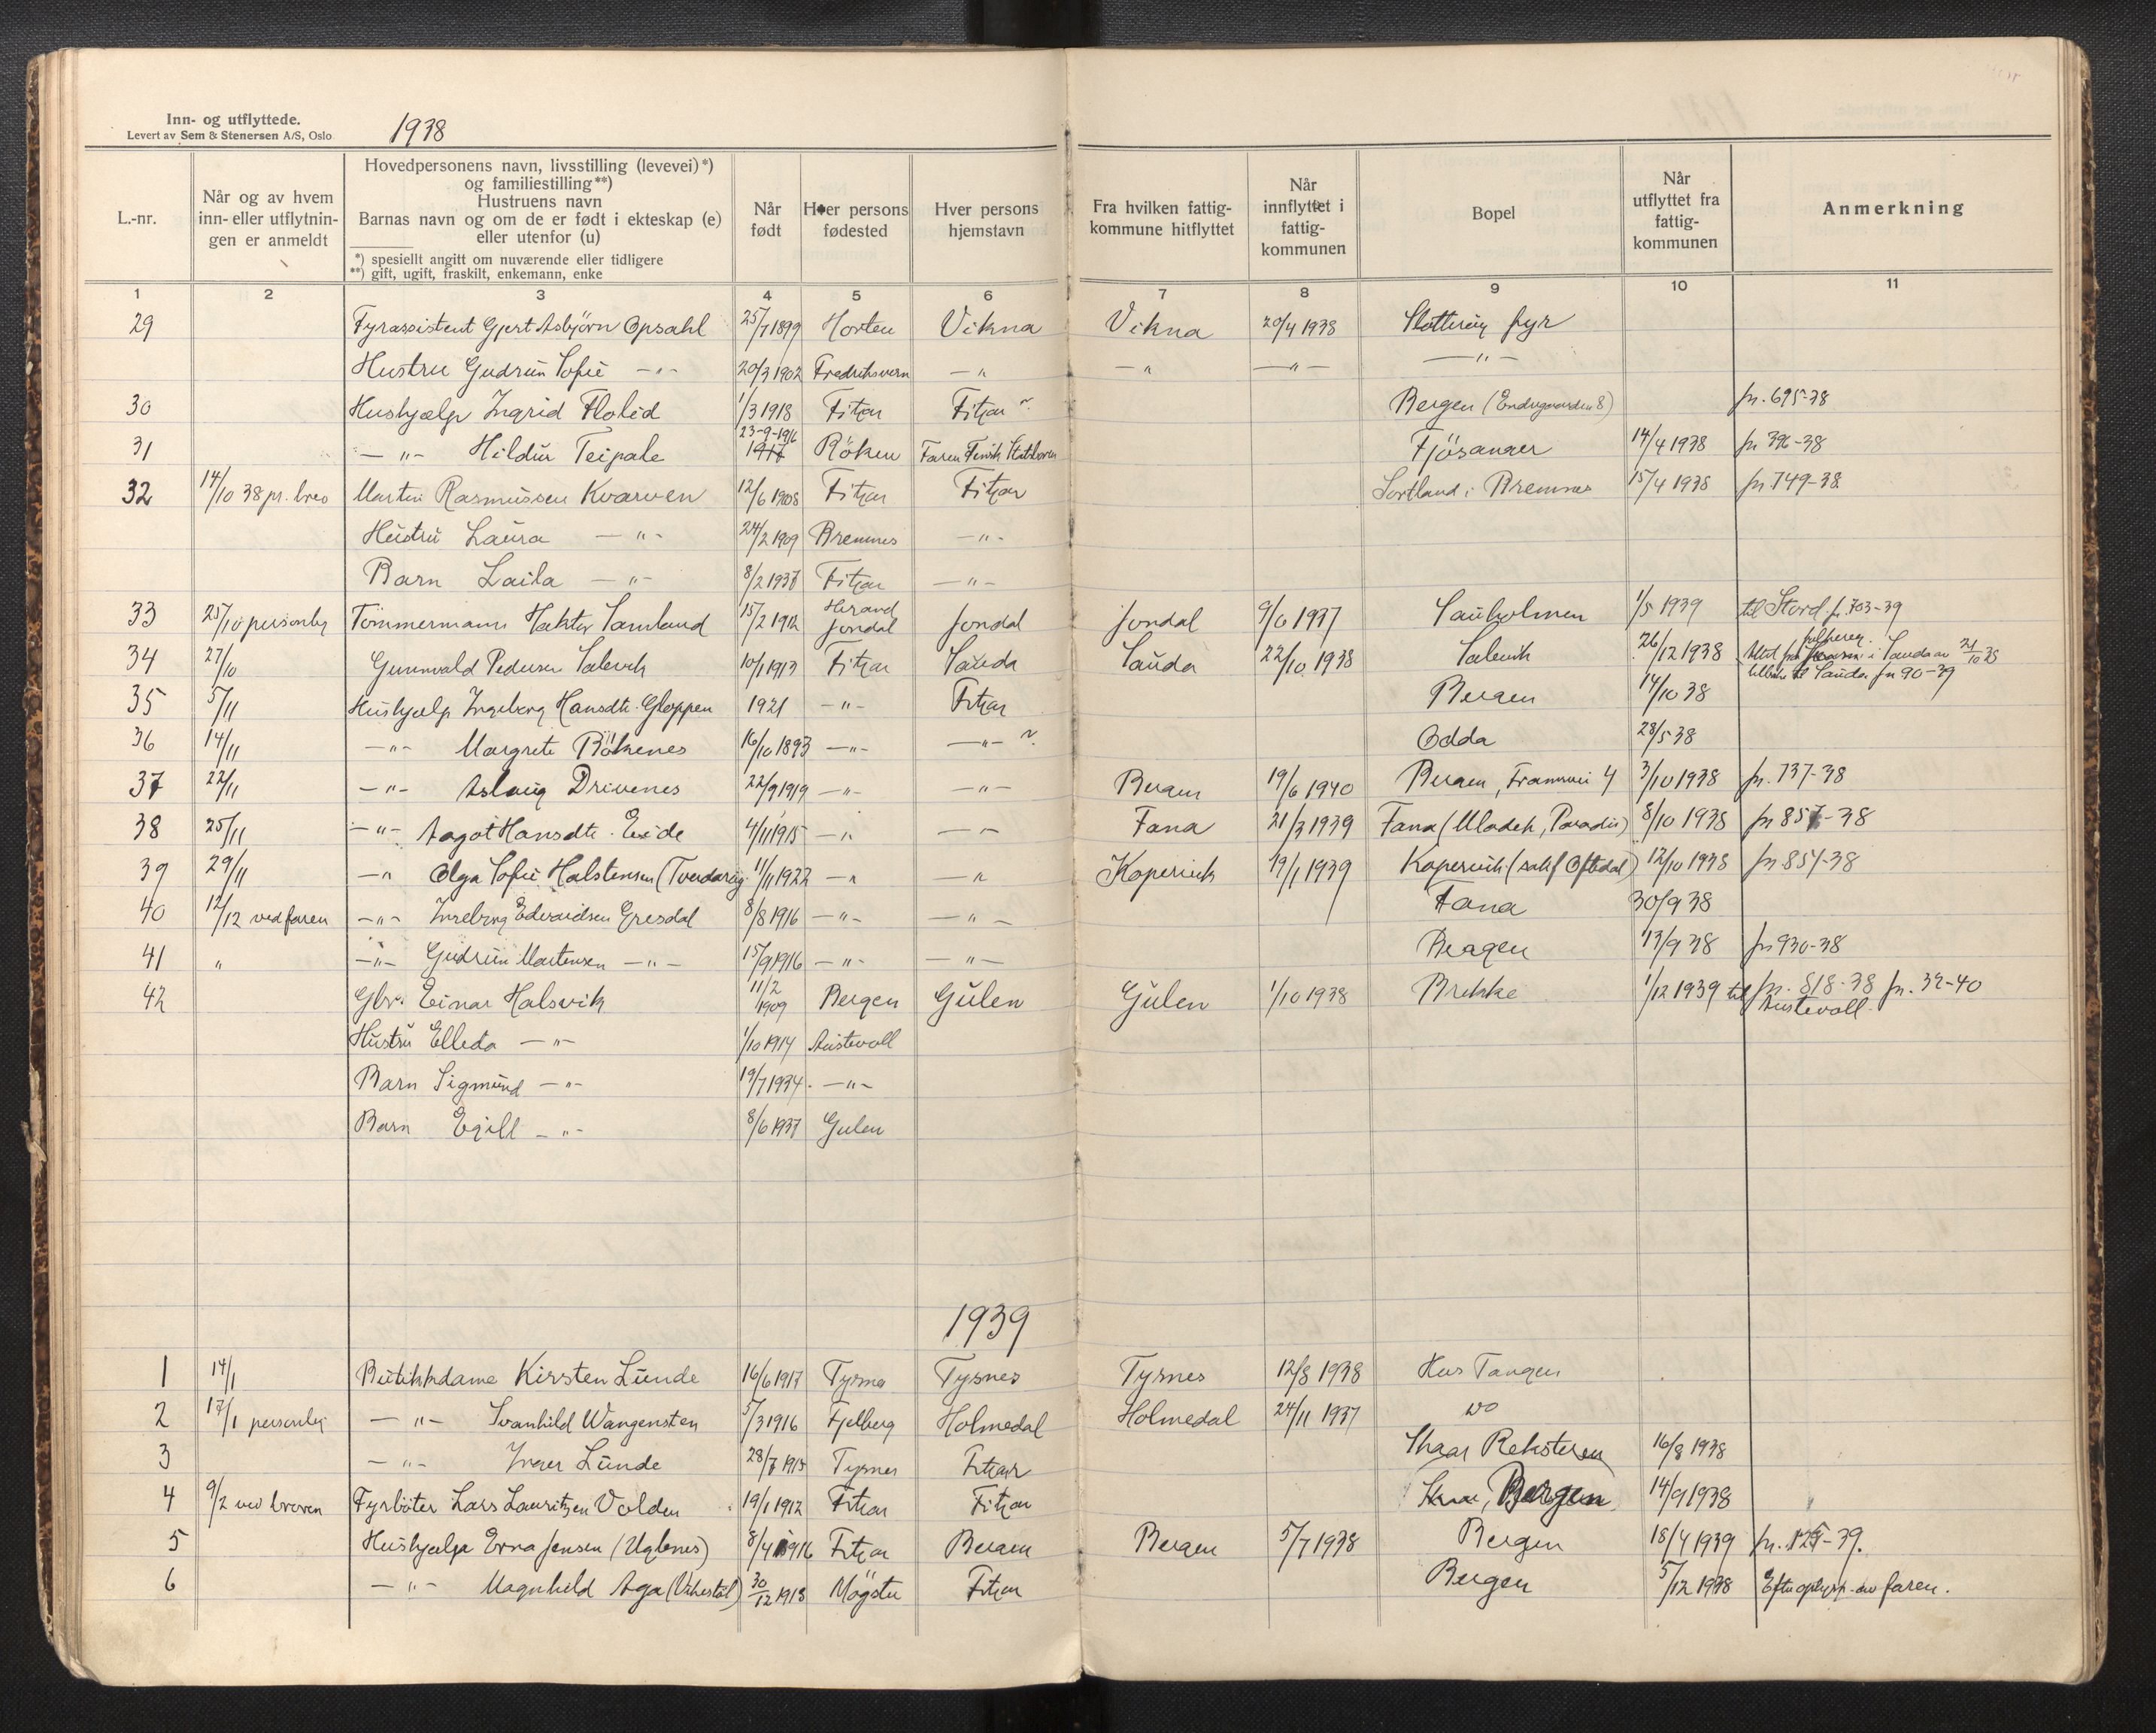 Inn- og utflyttede.
Levert av Sem & Stenersen A/S, Oslo
1938
L.-nr.
Når og av hvem inn- eller utflytnin- gen er anmeldt
Hovedpersonens navn, livsstilling (levevei)*)
og familiestilling**)
Hustruens navn
Barnas navn og om de er født i ekteskap (e)
eller utenfor (u)
*) spesiellt angitt om nuværende eller tidligere
**) gift, ugift, fraskilt, enkemann, enke
Når født
Hver persons fødested
Hver persons hjemstavn
Fra hvilken fattig- kommune hitflyttet
Når innflyttet i fattig- kommunen
Bopel
Når utflyttet fra fattig- kommunen
Anmerkning
1 2 3 4 5 6 7 8 9 10 11
29 Fyrassistent Gjert Asbjörn Opsahl 25/7 1899 Horten Vikna Vikna 20/4 1938 Slotteröy fyr
Hustru Gudrun Sofie —"— 20/3 1902 Fredriksvern —" —" —"— —"—
30 Hushjælp Ingrid Flolid 1/3 1918 Fitjar Fitjar Bergen (Endregaarden 8) jn. 695-38
31 —"— Hildur Teipale 23-9-1916 1917 Röken Faren Finsk Statsborer Fjösanger 14/4 1938 jn 396-38
32 14/10 38 pr. brev Martin Rasmussen Kvarven 12/6 1908 Fitjar Fitjar Sortland i Bremnes 15/4 1938 jn 749-38
Hustru Laura —"— 24/2 1909 Bremnes —"—
Barn Laila —"— 8/2 1937 Fitjar —"—
33 25/10 personlig Tömmermann Hakter Samland 15/2 1912 Herand Jondal Jondal Jondal 9/6 1937 Sauholmen 1/5 1939 til Stord. jn. 703-39
34 27/10 Gunnvald Pedersen Salevik 10/1 1913 Fitjar Sauda Sauda 22/10 1938 Salevik 26/12 1938 i Sauda av 21/10 38
tilbake til Sauda jn 90-39
35 5/11 Hushjælp Ingeborg Hansdtr. Gloppen 1921 —"— Fitjar Bergen 14/10 38
36 14/11 —"— Margrete Rökenes 16/10 1893 —"— —"— Odda 28/5 38
37 22/11 —"— Aslaug Drivenes 22/9 1919 —"— —"— Bergen 19/6 1940 Bergen, Framvei 4 3/10 1938 jn. 737-38
38 25/11 —"— Aagot Hansdtr. Eide 4/11 1915 —" —"— Fana 21/3 1939 Fana (Mladek, Paradis) 8/10 1938 jn 857-38
39 29/11 —" Olga Sofie Halstensen (Tveidaröy 11/11 1922 —" —" Kopervik 19/1 1939 Kopervik (sakf Oftedal) 12/10 1938 jn 857-38
40 12/12 ved faren —"— Ingeborg Edvardsen Gresdal 8/8 1916 —"— —"— Fana 30/9 38
41 " —"— Gudrun Martensen —"— 15/9 1916 —"— —"— Bergen 13/9 38 jn 930-38
42 Gbr. Einar Halsvik 11/2 1909 Bergen Gulen Gulen 1/10 1938 Brekke 1/12 1939 til jn. 818-38 jn. 32-40
Austevoll
Hustru Elleda —"— 1/10 1914 Austevoll
Barn Sigmund —"— 19/7 1934. —"—
Barn Egill —"— 8/6 1937 Gulen
1939
1 14/1 Butikkdame Kirsten Lunde 16/6 1917 Tysnes Tysnes Tysnes 12/8 1938 Hus Tangen
2 17/1 personlig —"— Svanhild Wangensten 5/3 1916 Fjelberg Holmedal Holmedal 24/11 1937 do
3 —"— Inger Lunde 28/7 1915 Tysnes Fitjar Skaar Reksteren 16/8 1938
4 9/2 ved broren Fyrböter Lars Lauritzen Volden 19/1 1912 Fitjar Fitjar Bergen 14/9 1938
5 Hushjælp Erna Jensen (Uglenes) 8/4 1916 Fitjar Bergen Bergen 5/7 1938 Bergen 18/4 1939 jn. 125-39.
6 —"— Magnhild Aga (Vikestöl) 30/12 1918 Mögster Fitjar Bergen 5/12 1938 Efter oplysn. av faren.